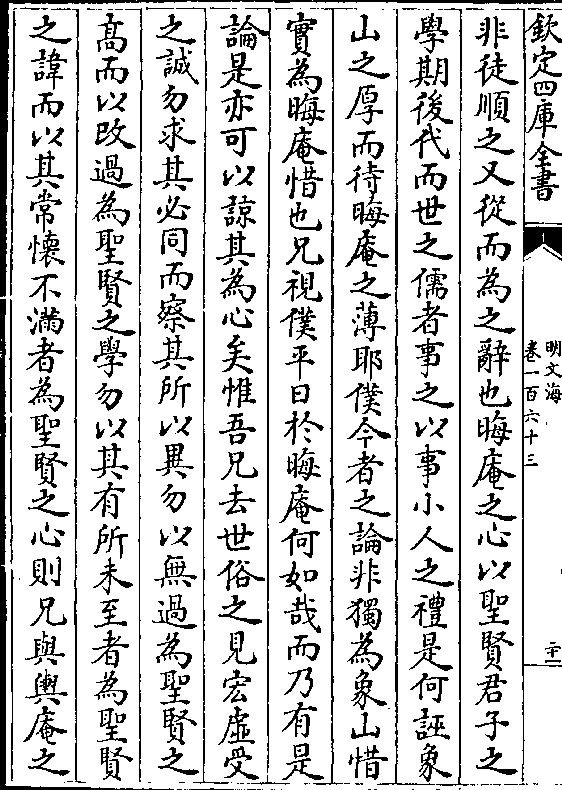 欽定四庫全書
明文海
卷一百六十三
二十一
非徒順之又從而為之辭也晦庵之心以聖賢君子之
學期後代而世之儒者事之以事小人之禮是何誣象
山之厚而待晦庵之薄耶僕今者之論非獨為象山惜
實為晦庵惜也兄視僕平日於晦庵何如哉而乃有是
論是亦可以諒其為心矣惟吾兄去世俗之見宏虛受
之誠勿求其必同而察其所以異勿以無過為聖賢之
髙而以改過為聖賢之學勿以其有所未至者為聖賢
之諱而以其常懷不滿者為聖賢之心則兄與輿庵之